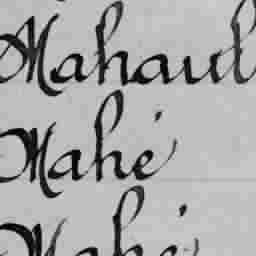 Mahaul
Mahé
Mahé